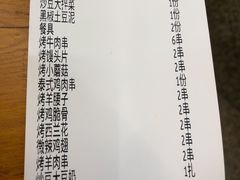 炒豆大拌菜 1份
黑椒土豆泥 1份
餐具 2份
烤牛肉串 6串
烤馒头片 2串
烤小蘑菇 2串
泰式鸡肉串 1份
烤羊腰子 2串
烤鸡脆骨 2串
烤西兰花 2串
微辣鸡翅 2串
烤羊肉串 2串
1扎